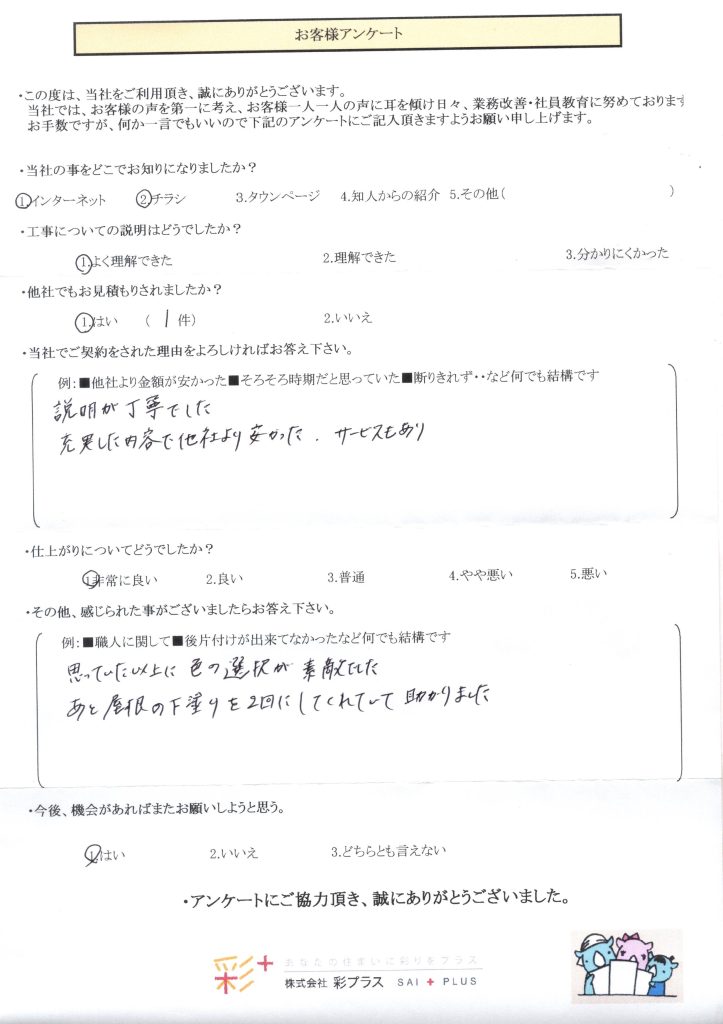 お客様アンケート
・この度は、当社をご利用頂き、誠にありがとうございます。
当社では、お客様の声を第一に考え、お客様一人一人の声に耳を傾け日々、業務改善・社員教育に努めております
お手数ですが、何か一言でもいいので下記のアンケートにご記入頂きますようお願い申し上げます。
・当社の事をどこでお知りになりましたか?
1.インターネット 2.チラシ 3.タウンページ 4.知人からの紹介 5.その他( )
・工事についての説明はどうでしたか?
1.よく理解できた 2.理解できた 3.分かりにくかった
・他社でもお見積もりされましたか?
1.はい ( 1 件) 2.いいえ
・当社でご契約をされた理由をよろしければお答え下さい。
例:■他社より金額が安かった■そろそろ時期だと思っていた■断りきれず・・など何でも結構です
説明が丁寧でした
充実した内容で他社より安かった. サービスもあり
・仕上がりについてどうでしたか?
1非常に良い 2.良い 3.普通 4.やや悪い 5.悪い
・その他、感じられた事がございましたらお答え下さい。
例:■職人に関して■後片付けが出来てなかったなど何でも結構です
思っていた以上に 色の選択が 素敵でした
あと 屋根の下塗りを2回にしてくれていて 助かりました
・今後、機会があればまたお願いしようと思う。
1.はい 2.いいえ 3.どちらとも言えない
・アンケートにご協力頂き、誠にありがとうございました。
彩+ あなたの住まいに彩りをプラス
株式会社 彩プラス SAI + PLUS